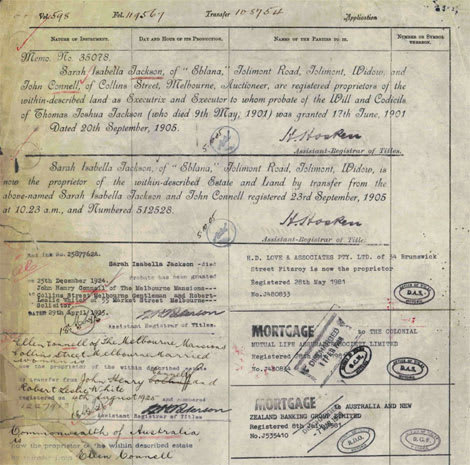 Vol. 598 Fol. 119567 Transfer 105754 Application
NATURE OF INSTRUMENT. DAY AND HOUR OF ITS PRODUCTION. NAMES OF THE PARTIES TO IT. NUMBER OR SYMBOL THEREON.
Memo. No. 35078.
Sarah Isabella Jackson, of "Eblana", Jolimont Road, Jolimont, Widow, and
John Connell, of Collins Street, Melbourne, Auctioneer, are registered proprietors of the
within-described land as Executrix and Executor to whom probate of the Will and Codicils
of Thomas Joshua Jackson (who died 9th May, 1901) was granted 17th June, 1901
Dated 20th September, 1905.
Assistant-Registrar of Titles.
Sarah Isabella Jackson, of "Eblana", Jolimont Road, Jolimont, Widow, is
now the proprietor of the within-described Estate and Land by transfer from the
above-named Sarah Isabella Jackson and John Connell registered 23rd September, 1905
at 10.23 a.m., and Numbered 512528.
Assistant-Registrar of Titles.
Sarah Isabella Jackson died
25th December 1924. Probate has been granted
John Henry Connell of The Melbourne Mansions
Collins Street Melbourne Gentleman and Robert
Leslie White of Street Melbourne
Solicitor.
DATED 29th April 1925.
Assistant Registrar of Titles.
Ellen Connell of The Melbourne Mansions
Collins Street Melbourne Married
proprietor of the within described estate
by transfer from John Henry Connell and
Robert Leslie White
August 1925
Assistant Registrar of Titles
Commonwealth of Australia
now the proprietor of the within described estate
by transfer from Ellen Connell
R.D. LOVE & ASSOCIATES PTY. LTD. of 34 Brunswick
Street Fitzroy is now the proprietor
Registered 28th May 1981
No.J480833
MORTGAGE to THE COLONIAL
MUTUAL LIFE ASSURANCE SOCIETY LIMITED
Registered 1981
DISCHARGED
MORTGAGE to AUSTRALIA AND NEW
ZEALAND BANKING GROUP LIMITED
Registered 8th July 1981
No.J535410
DISCHARGED